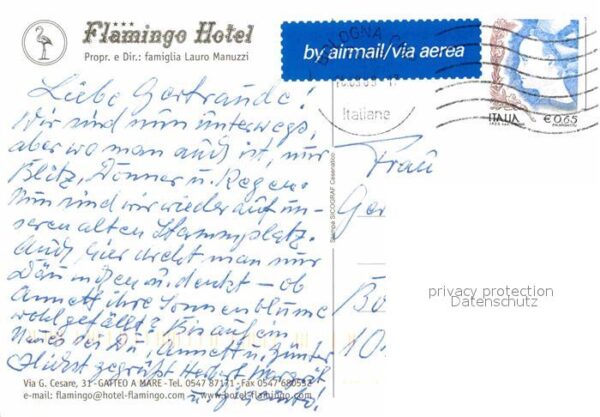 Flamingo Hotel
Propr. e Dir.: famiglia Lauro Manuzzi
by airmail/via aerea
BOLOGNA
Italiane
ITALIA
€0,65
Liebe Gertraude!
Wir sind nun unterwegs,
aber wo man auch ist, nur
Blitz, Donner u. Regen.
Nun sind wir wieder auf un-
seren alten Stammplatz.
Auch hier dreht man nur
Däumchen u. denkt – ob
Annett ihre Sonnenblume
wohl gefällt? Bis auf ein
Neues bei Dir, Annett u. Günter
gegrüßt Herbert
Frau
Ger
Bo
10
Stampa SICOGRAF Cesenatico
privacy protection
Datenschutz
Via G. Cesare, 31 - GATTEO A MARE - Tel. 0547 87171 - Fax 0547 680532
e-mail: flamingo@hotel-flamingo.com www.hotel-flamingo.com